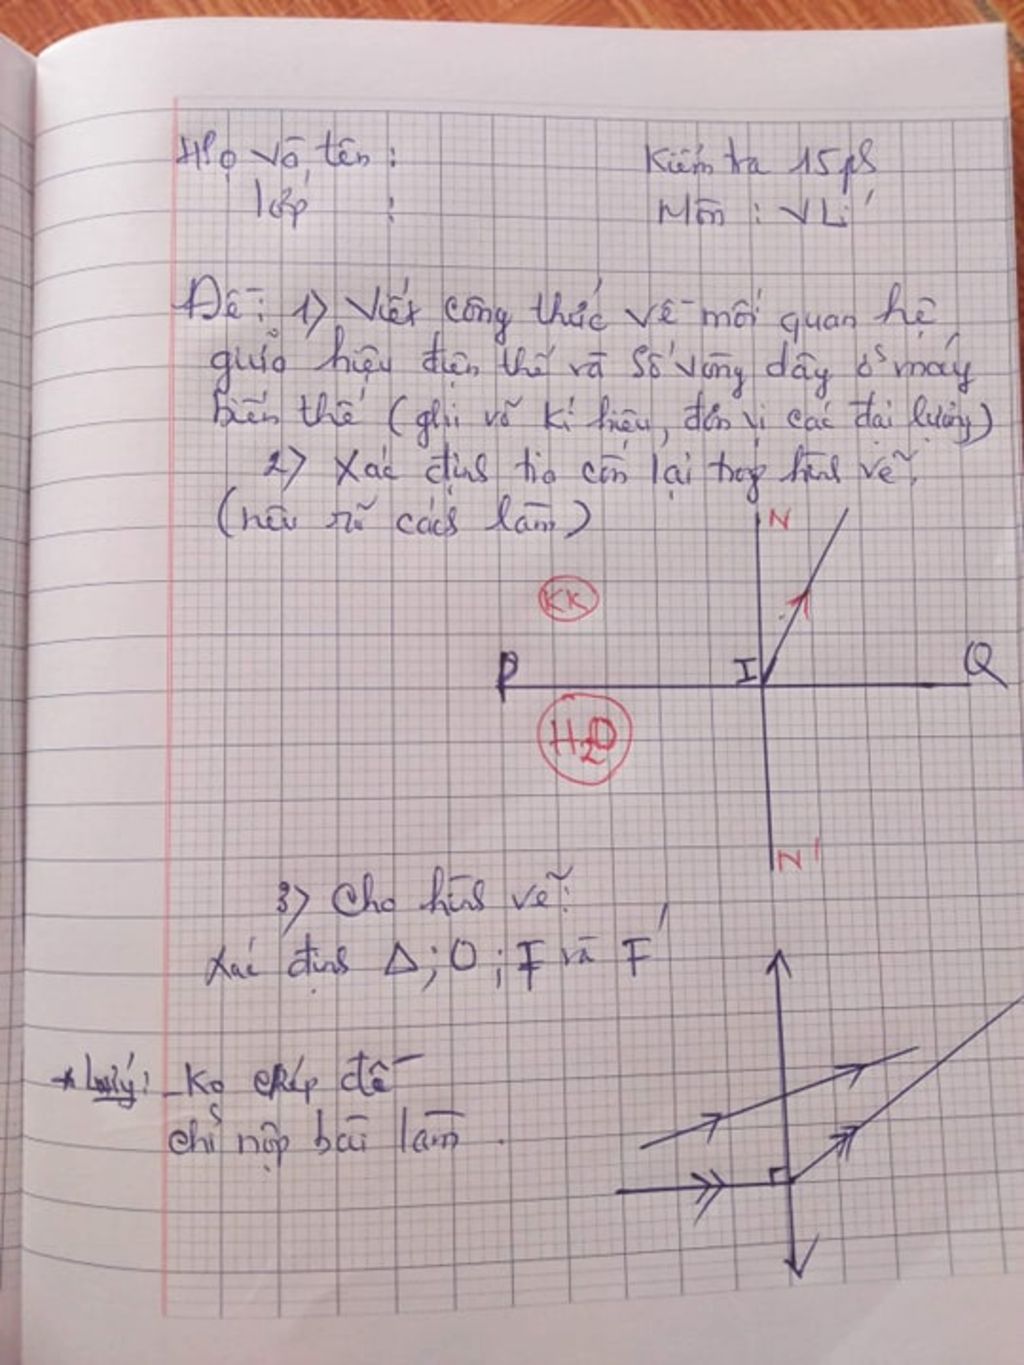 Họ và tên :
Kiểm tra 15ph
lớp :
Môn : VLí
Đề: 1) Viết công thức về mối quan hệ
giữa hiệu điện thế và số vòng dây ở máy
biến thế (ghi rõ kí hiệu, đơn vị các đại lượng)
2) Xác định tia còn lại trong hình vẽ.
(nêu rõ cách làm)
N
KK
P
I
Q
H2O
N'
3) Cho hình vẽ:
Xác định Δ; O; F và F'
* Lưu ý: - Ko chép đề
chỉ nộp bài làm.